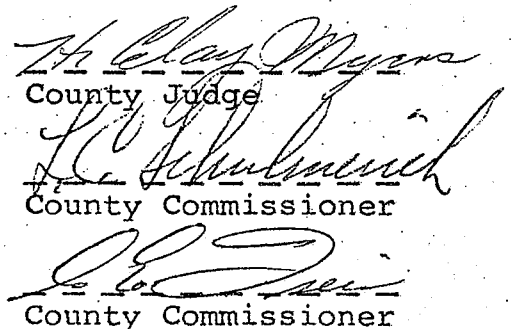 H. Clay Myers
County Judge
L. C. Schulmerich
County Commissioner
County Commissioner